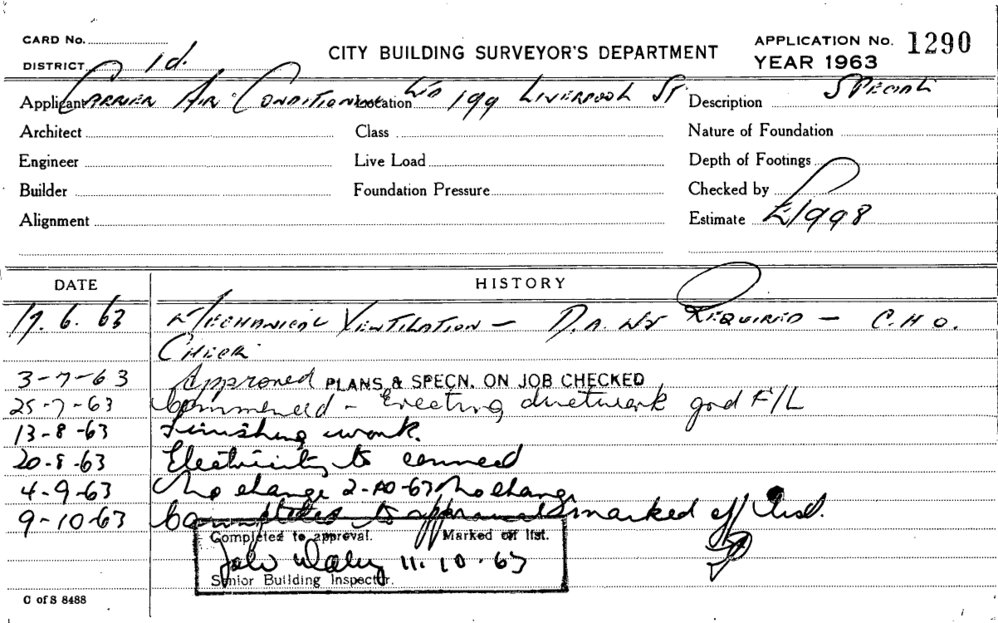 CARD No.
DISTRICT 1d.
CITY BUILDING SURVEYOR'S DEPARTMENT
APPLICATION No. 1290
YEAR 1963
Applicant CARRIER AIR CONDITIONING Location 199 LIVERPOOL ST Description SPECIAL
Architect Class Nature of Foundation
Engineer Live Load Depth of Footings
Builder Foundation Pressure Checked by
Alignment Estimate £1998
DATE HISTORY
17.6.63 MECHANICAL VENTILATION – D.A. NOT REQUIRED – C.H.O.
CHECK
3-7-63 Approved PLANS & SPECN. ON JOB CHECKED
25-7-63 Commenced - Erecting ductwork grd F/L
13-8-63 Finishing work.
20-8-63 Electricity to connect
4-9-63 No change 2-10-63 No change
9-10-63 Completed to approval & marked off list.
Completed to approval. Marked off list.
11.10.63
Senior Building Inspector.
C of S 8488